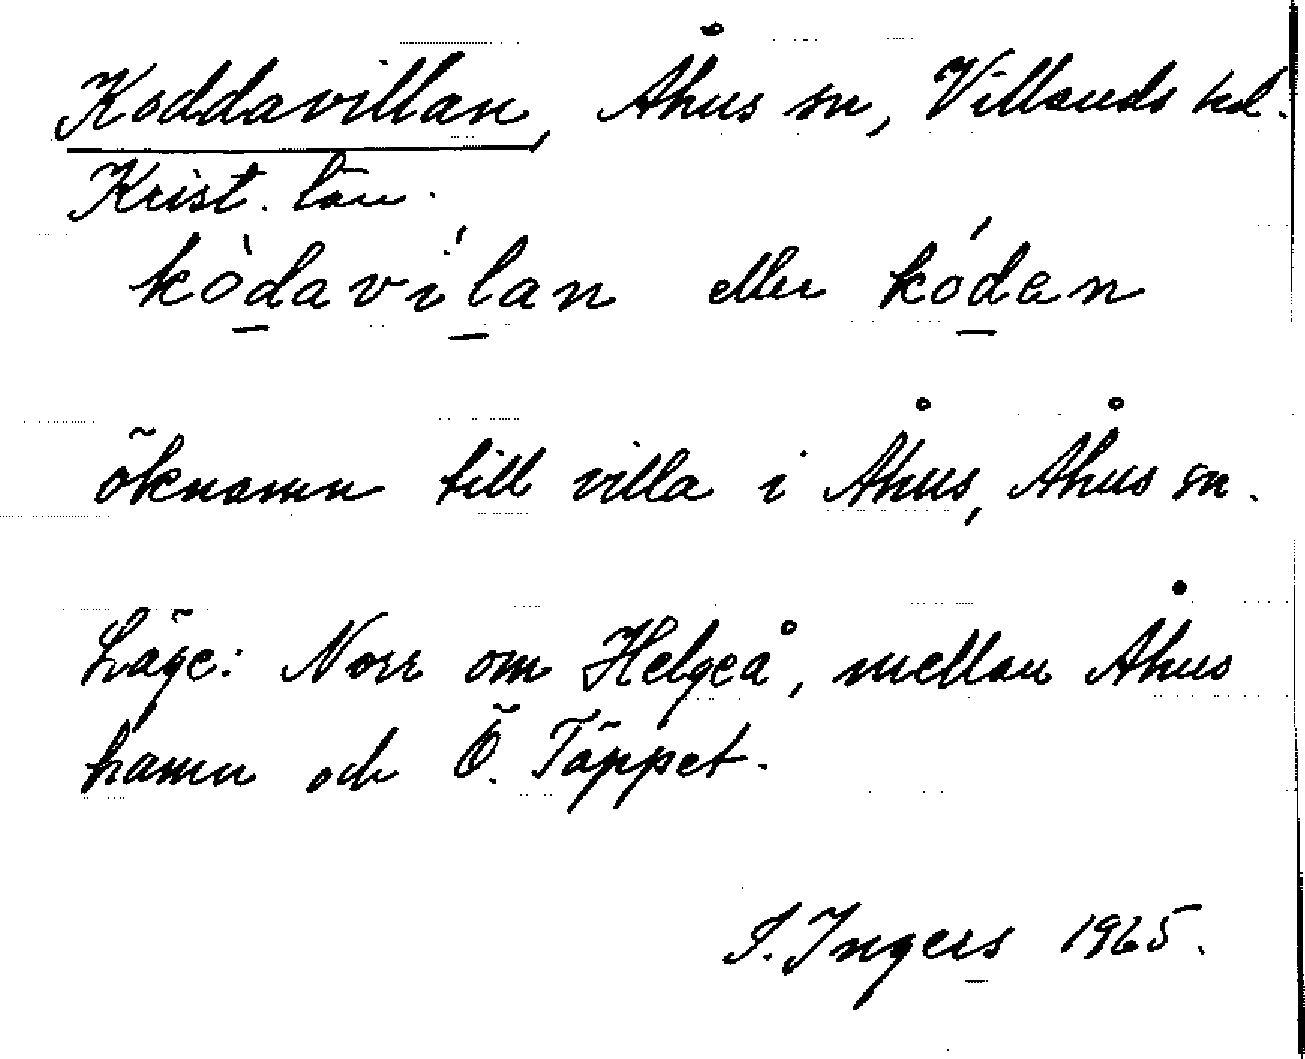 Koddavillan, Åhus sn, Villands hd.
Krist. län.
kòd̲avíl̲an eller kód̲an
öknamn till villa i Åhus, Åhus sn.
Läge: Norr om Helgeå, mellan Åhus
hamn och Ö. Täppet.
I. Ingers 1965.